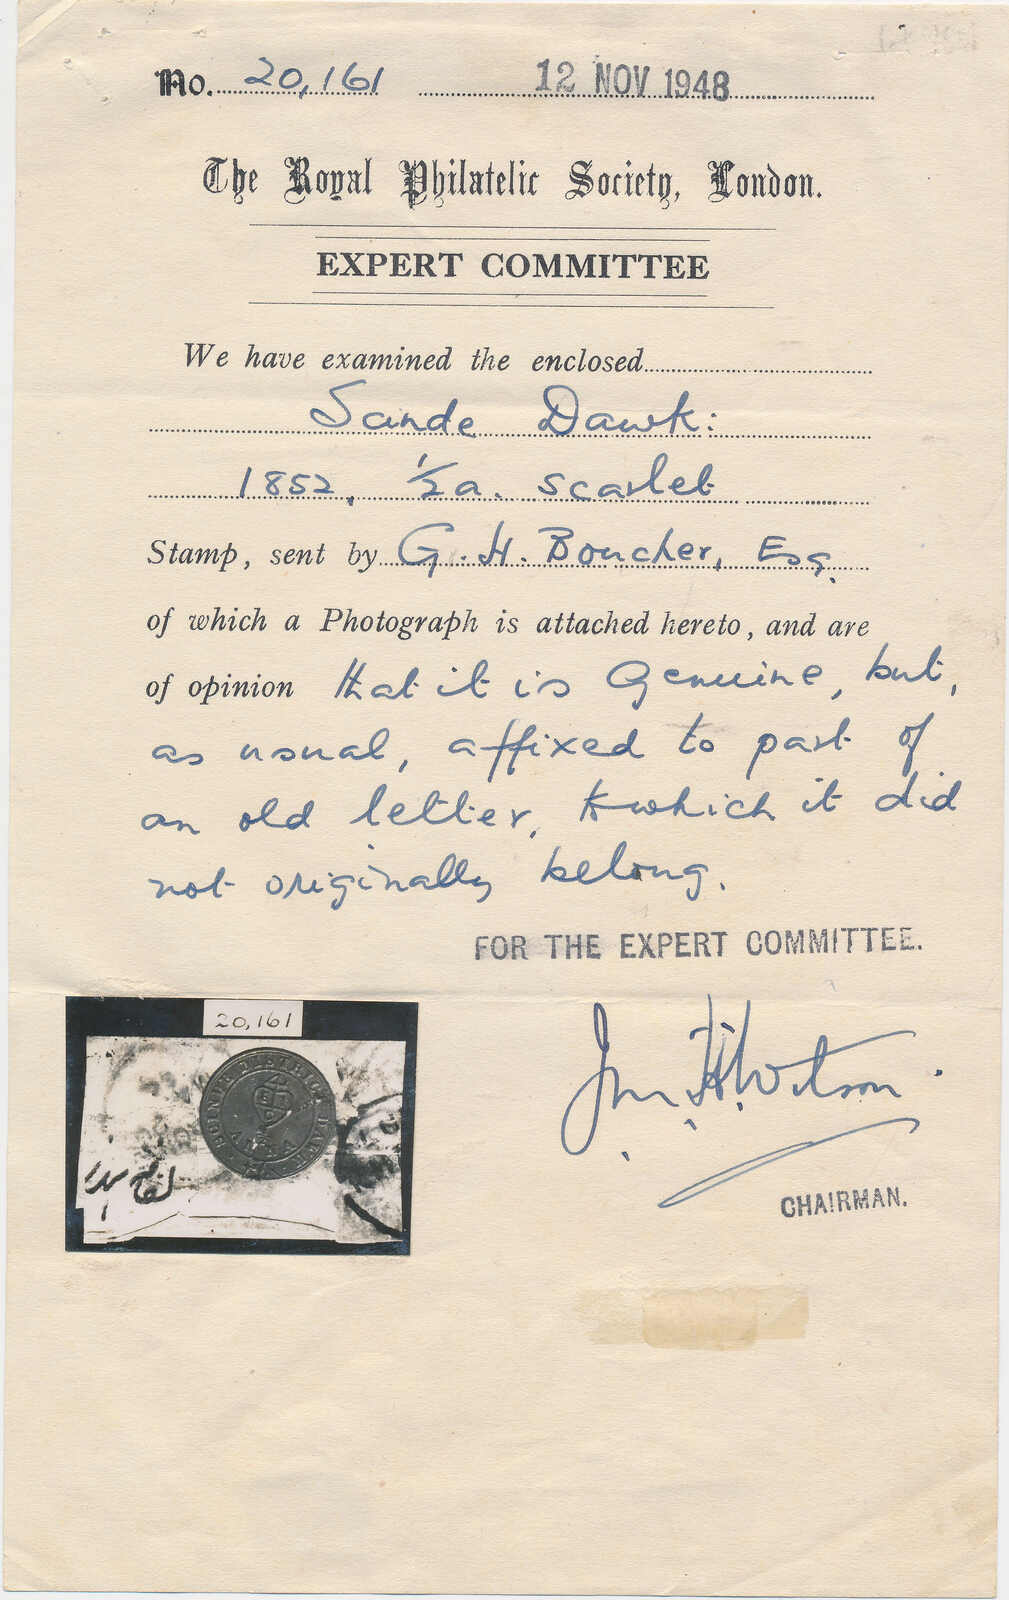 No. 20,161 12 NOV 1948
The Royal Philatelic Society, London.
EXPERT COMMITTEE
We have examined the enclosed
Sande Dawk:
1852, ½a. scarlet
Stamp, sent by G. H. Boucher, Esq.
of which a Photograph is attached hereto, and are
of opinion that it is Genuine, but,
as usual, affixed to part of
an old letter, to which it did
not originally belong.
FOR THE EXPERT COMMITTEE.
20,161
SCINDE DISTRICT DAWK
ANNA
CHAIRMAN.